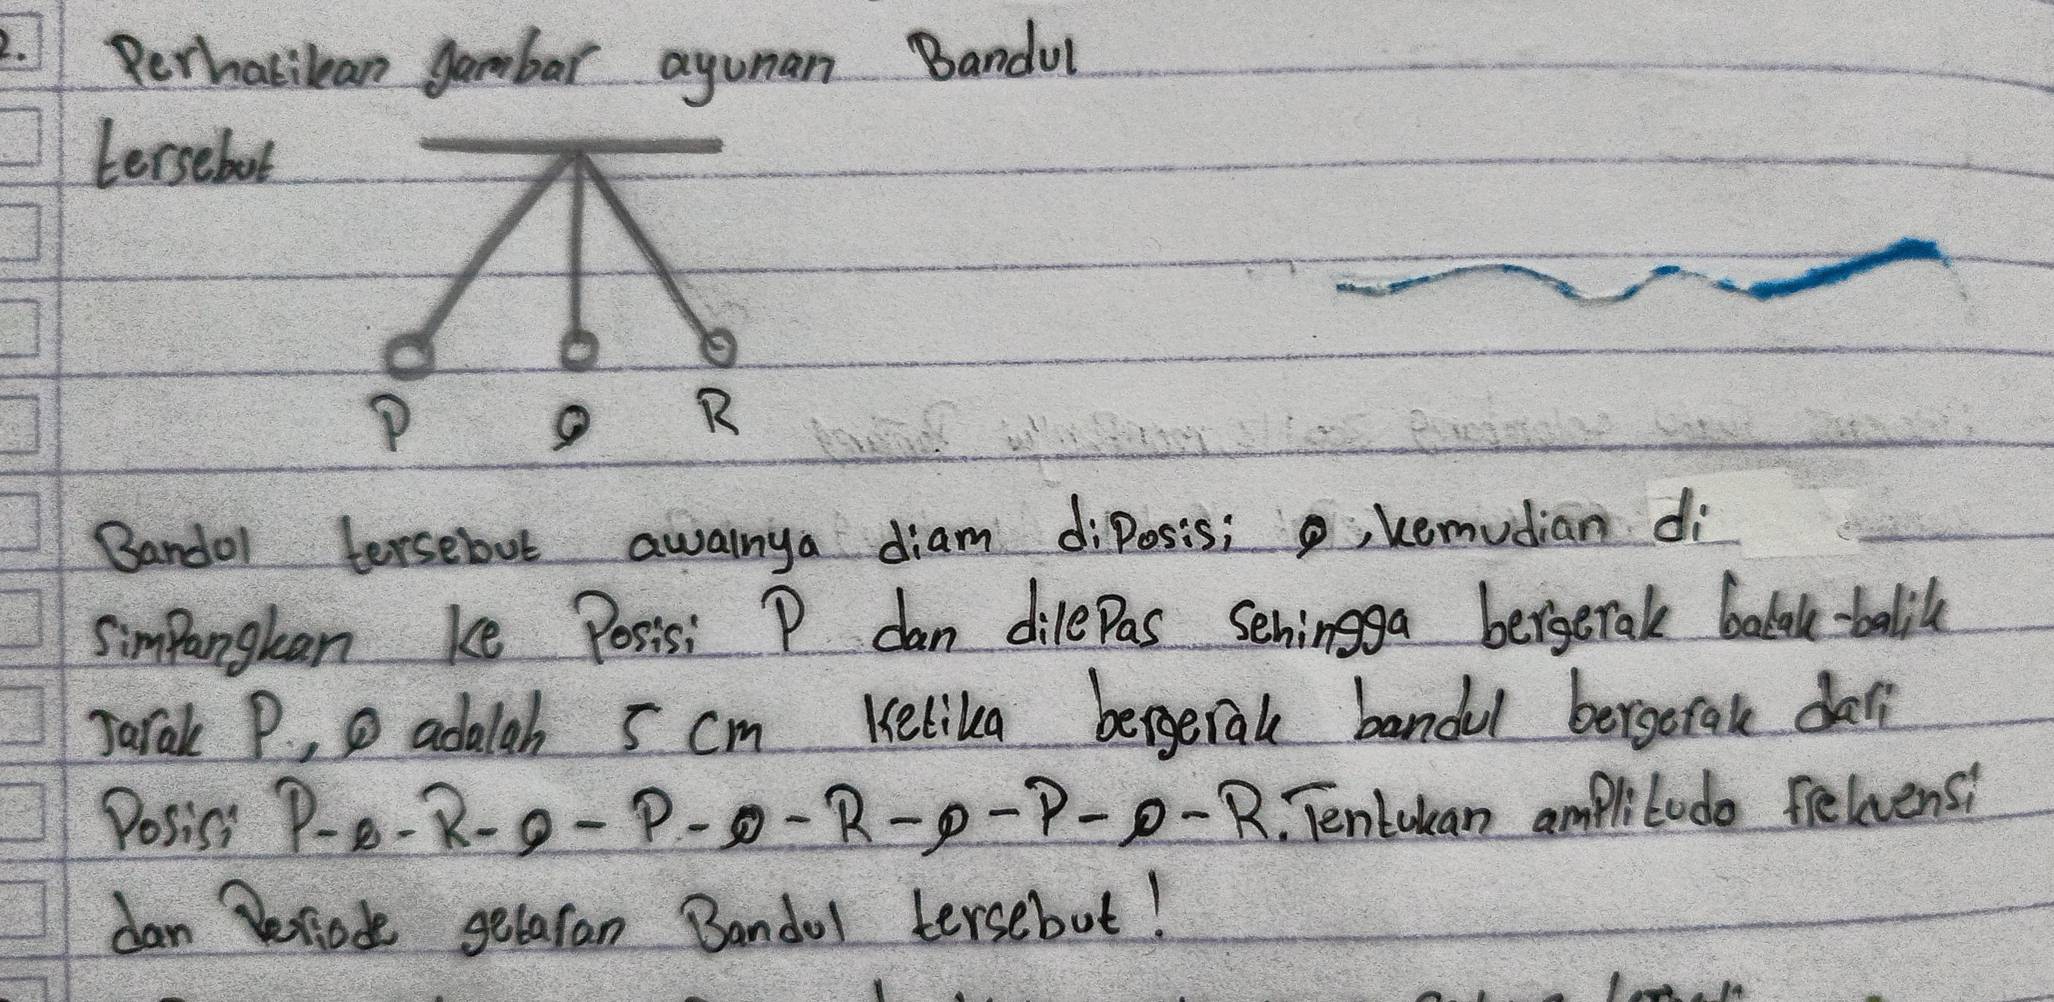 2. Perhatikan gambar ayunan Bandul
tersebut
P Q R
Bandul tersebut awalnya diam diPosisi Q, kemudian di
simPangkan ke Posisi P dan dilePas sehingga bergerak balak-balik
Jarak P., Q adalah 5 cm Ketika bergerak bandul bergerak dari
Posisi P-Q-R-Q-P-Q-R-Q-P-Q-R. Tentukan amPlitudo frekuensi
dan Periode getaran Bandul tersebut!